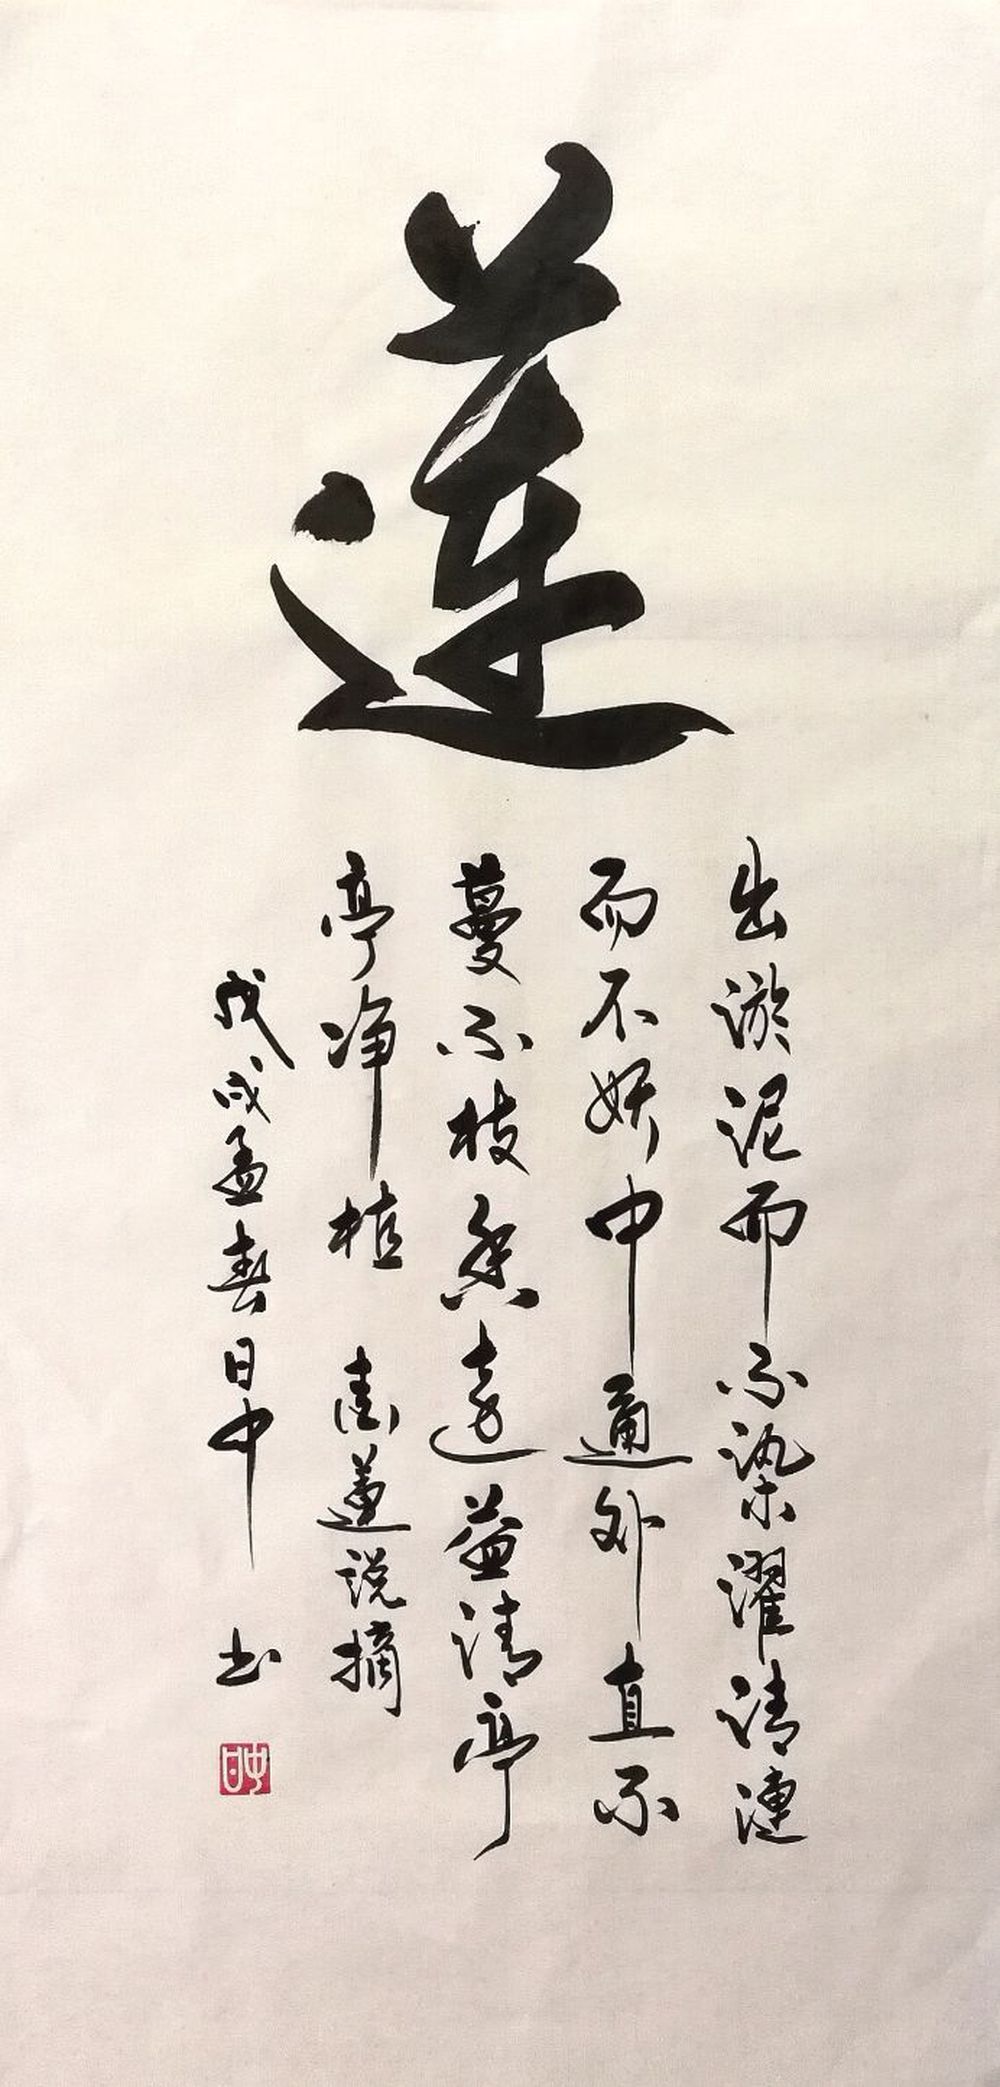 莲
出淤泥而不染濯清漣
而不妖中通外直不
蔓不枝香遠益清亭
亭净植 爱蓮说摘
戊戌孟春日中 书
日中